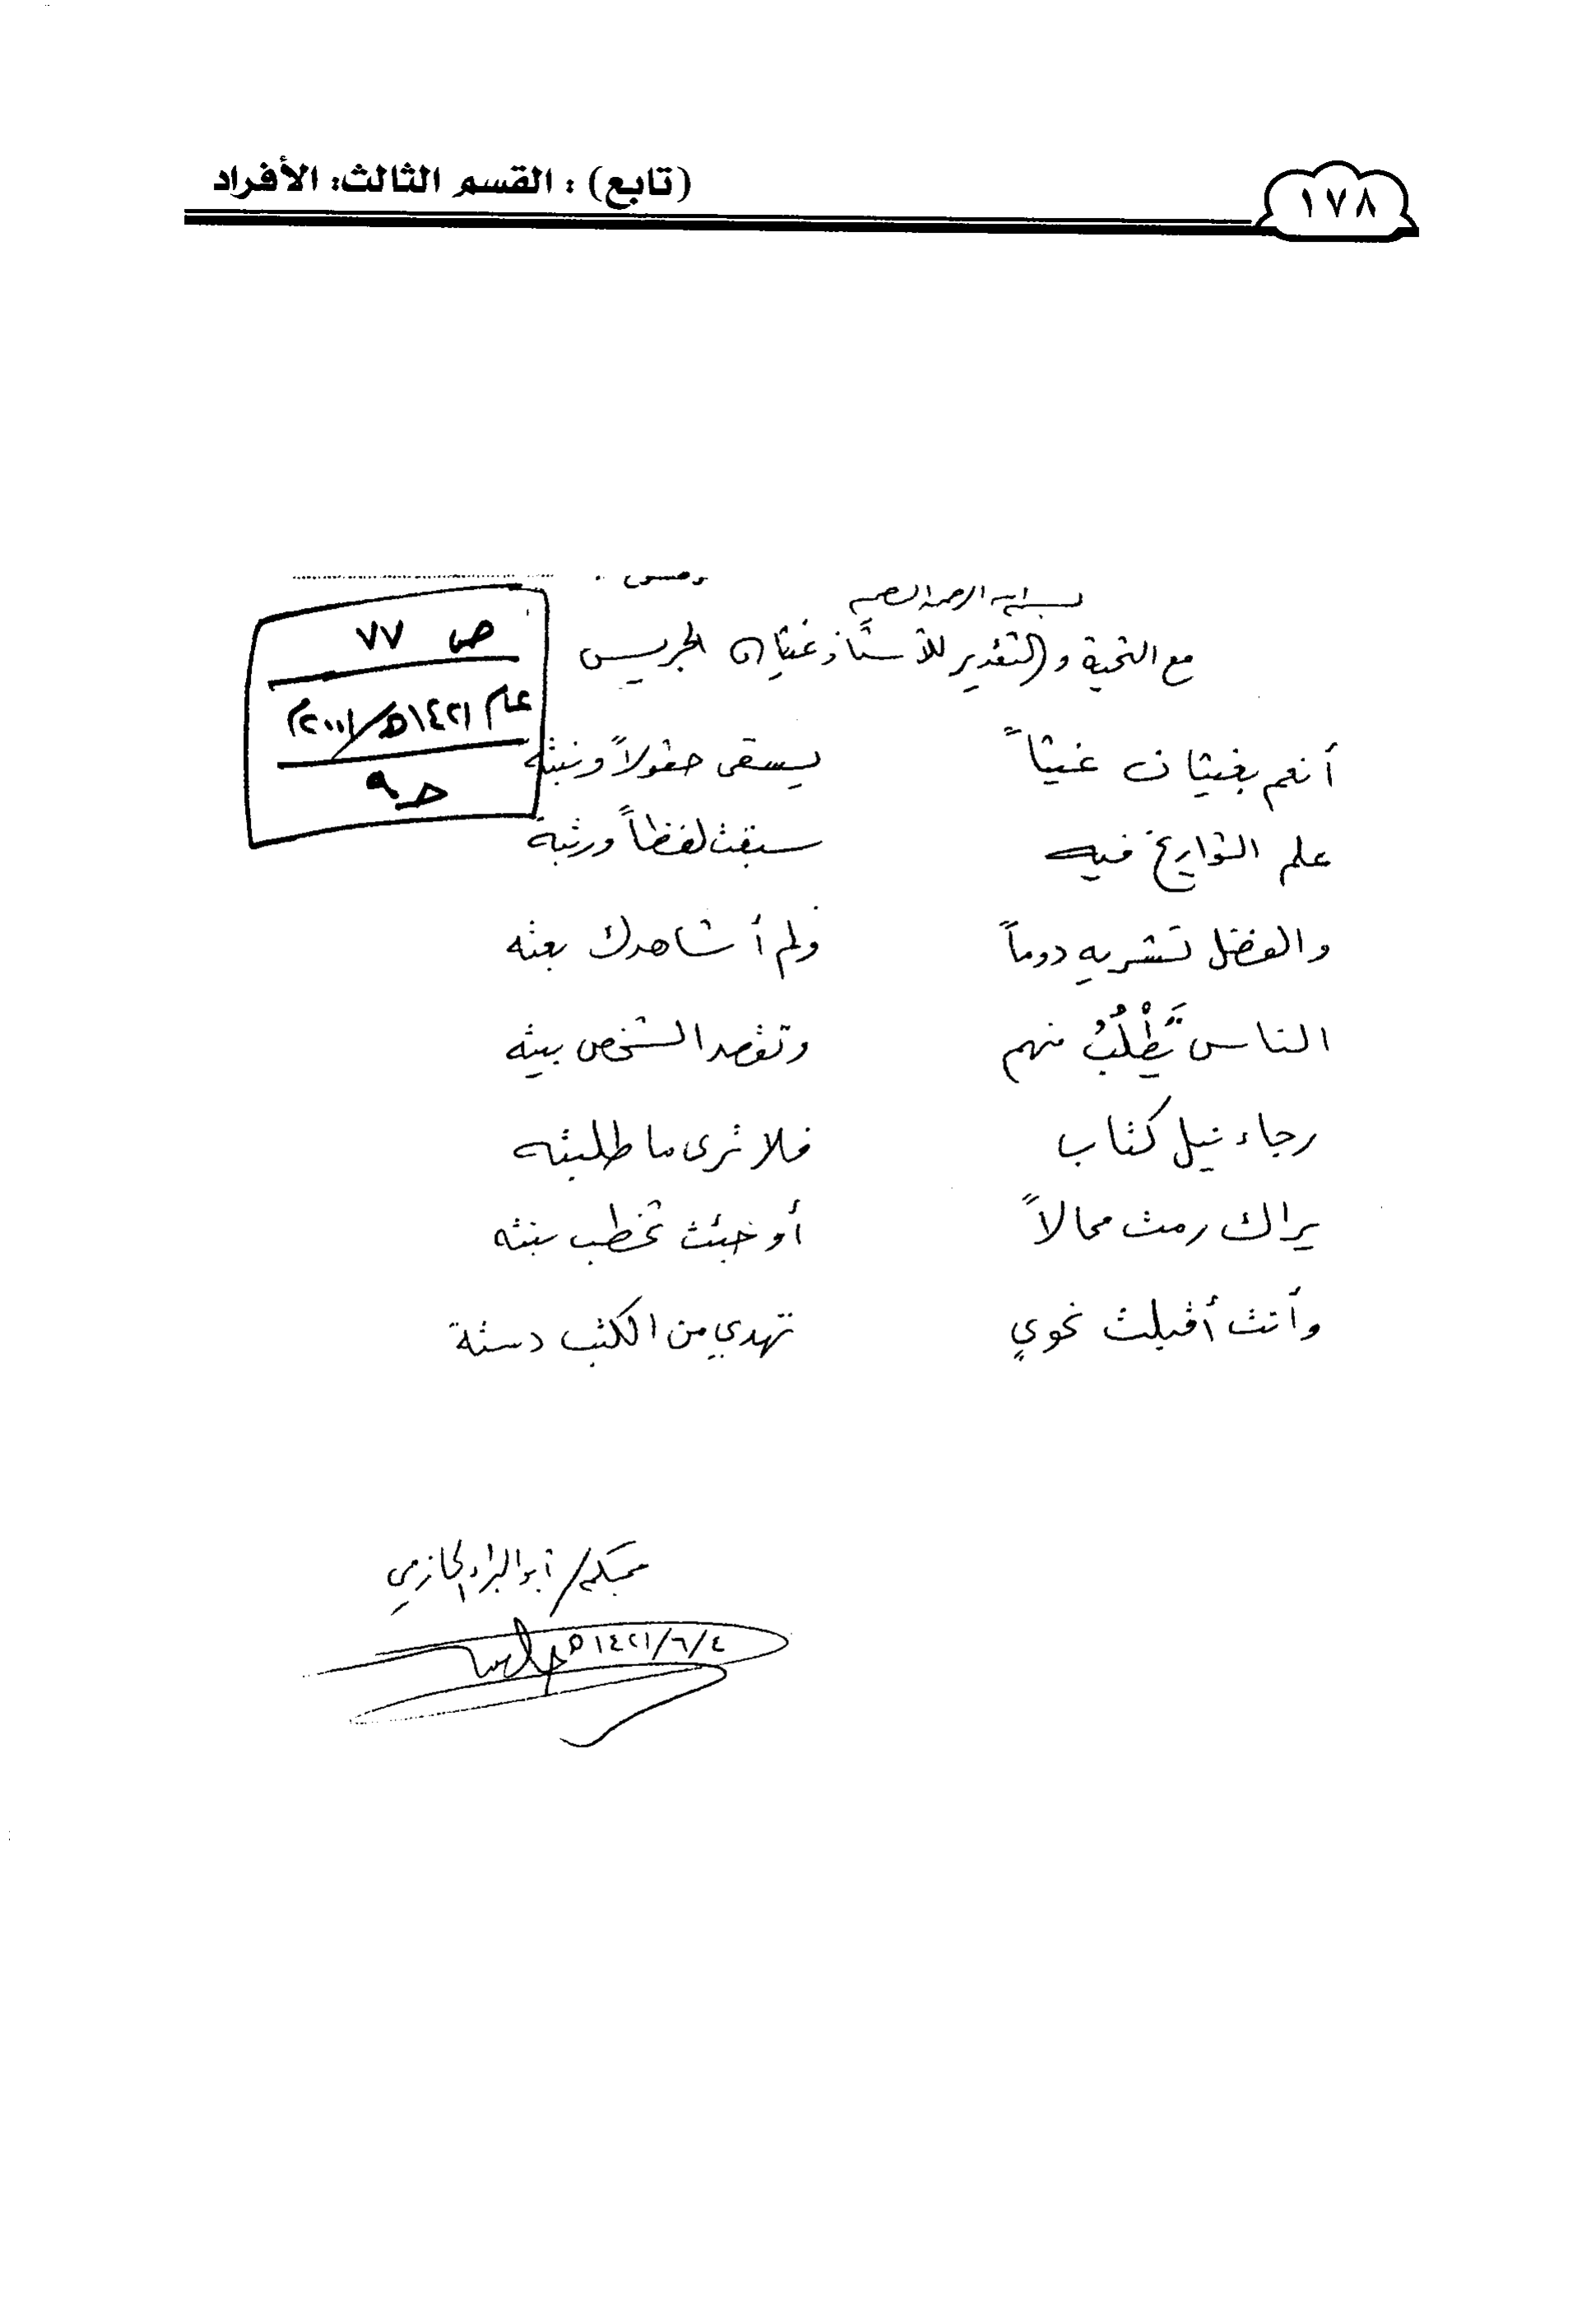 ١٧٨
(تابع) : القسم الثالث: الأفراد
ص ٧٧
عام ١٤٢١هـ/٢٠٠١م
حـ ٩
بسم الله الرحمن الرحيم
مع التحية والتقدير للأستاذ غيثان الجريس
أنعم بغيثان غيثاً يسقى حقولاً ونبته
علم التواريخ فيه سبقت لفظاً ورتبة
والفضل تشريه دوماً ولم أشاهدك بعته
الناس تَطْلُبُ منهم وتقصد الشخص بيته
رجاء نيل كتاب فلا ترى ما طلبته
يراك رمت محالاً أو جئت تخطب بنته
وأنت أقبلت نحوي تهدي من الكتب دستة
محبكم/ أبو البراء الحازمي
١٤٢١/٦/٤هـ